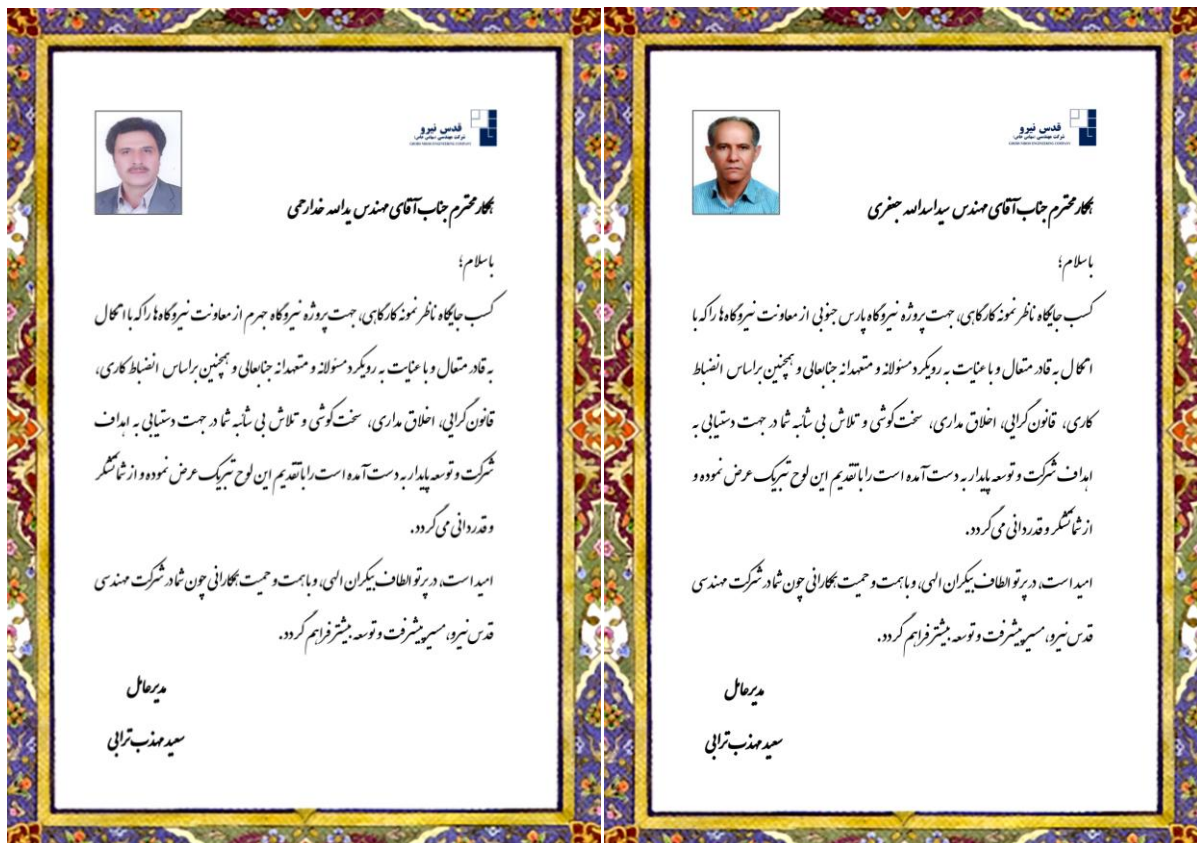 قدس نیرو
شرکت مهندسی (سهامی خاص)
GHODS NIROO ENGINEERING COMPANY
همکار محترم جناب آقای مهندس سیداسدالله جعفری
باسلام؛
کسب جایگاه ناظر نمونه کارگاهی، جهت پروژه نیروگاه پارس جنوبی از معاونت نیروگاه‌ها را که با
اتکال به قادر متعال و با عنایت به رویکرد مسئولانه و متعهدانه جنابعالی و همچنین براساس انضباط
کاری، قانون‌گرایی، اخلاق مداری، سخت‌کوشی و تلاش بی شائبه شما در جهت دستیابی به
اهداف شرکت و توسعه پایدار به دست آمده است را با تقدیم این لوح تبریک عرض نموده و
از شما تشکر و قدردانی می‌گردد.
امید است، در پرتو الطاف بیکران الهی، و با همت و حمیت همکارانی چون شما در شرکت مهندسی
قدس نیرو، مسیر پیشرفت و توسعه بیشتر فراهم گردد.
مدیرعامل
سعید مهذب ترابی
قدس نیرو
شرکت مهندسی (سهامی خاص)
GHODS NIROO ENGINEERING COMPANY
همکار محترم جناب آقای مهندس یدالله خدارحمی
باسلام؛
کسب جایگاه ناظر نمونه کارگاهی، جهت پروژه نیروگاه جهرم از معاونت نیروگاه‌ها را که با اتکال
به قادر متعال و با عنایت به رویکرد مسئولانه و متعهدانه جنابعالی و همچنین براساس انضباط کاری،
قانون‌گرایی، اخلاق مداری، سخت‌کوشی و تلاش بی شائبه شما در جهت دستیابی به اهداف
شرکت و توسعه پایدار به دست آمده است را با تقدیم این لوح تبریک عرض نموده و از شما تشکر
و قدردانی می‌گردد.
امید است، در پرتو الطاف بیکران الهی، و با همت و حمیت همکارانی چون شما در شرکت مهندسی
قدس نیرو، مسیر پیشرفت و توسعه بیشتر فراهم گردد.
مدیرعامل
سعید مهذب ترابی